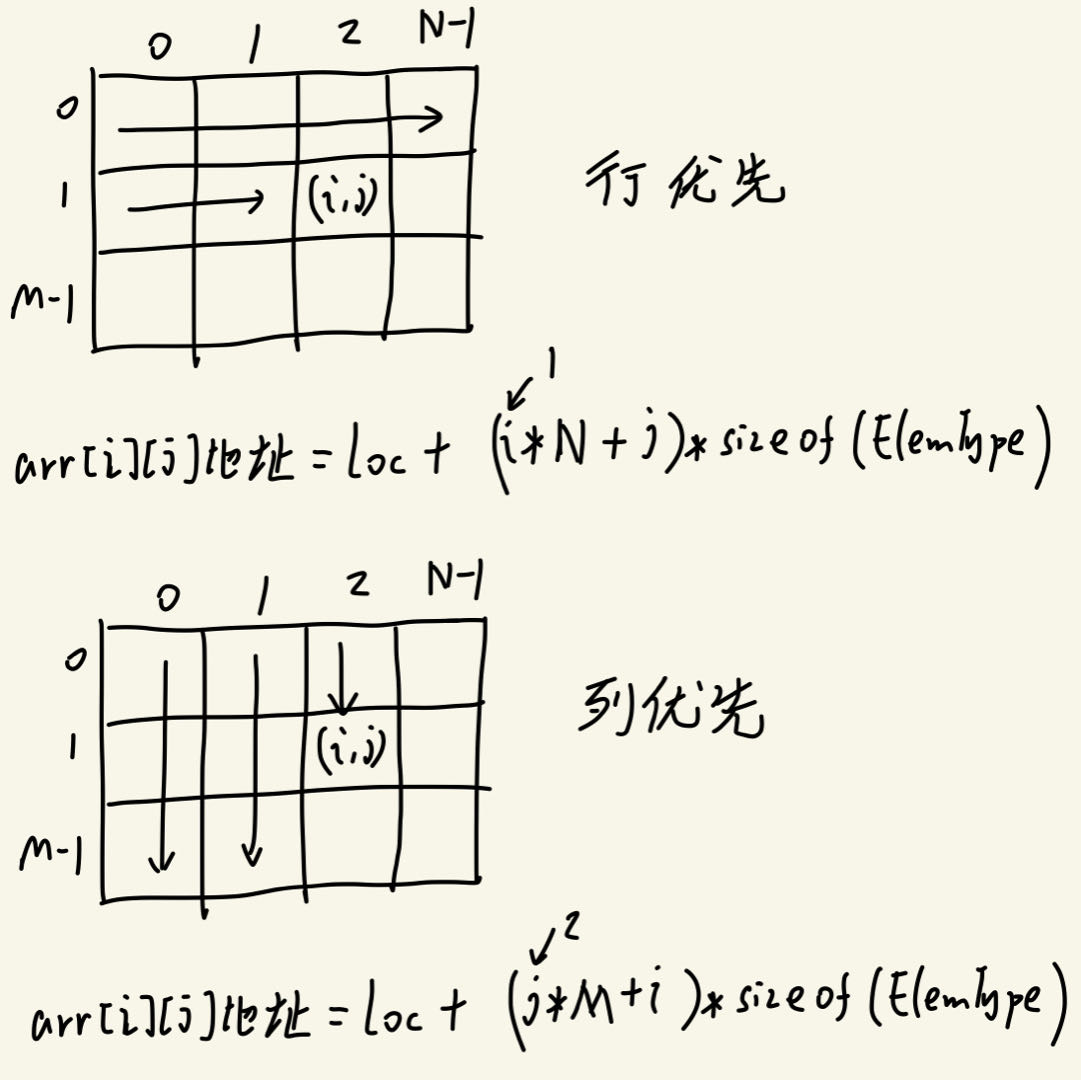 0 1 2 N-1
0
行优先
1 (i,j)
M-1
1
arr[i][j]地址 = loc + (i*N+j)*sizeof(ElemType)
0 1 2 N-1
0
列优先
1 (i,j)
M-1
2
arr[i][j]地址 = loc + (j*M+i)*sizeof(ElemType)